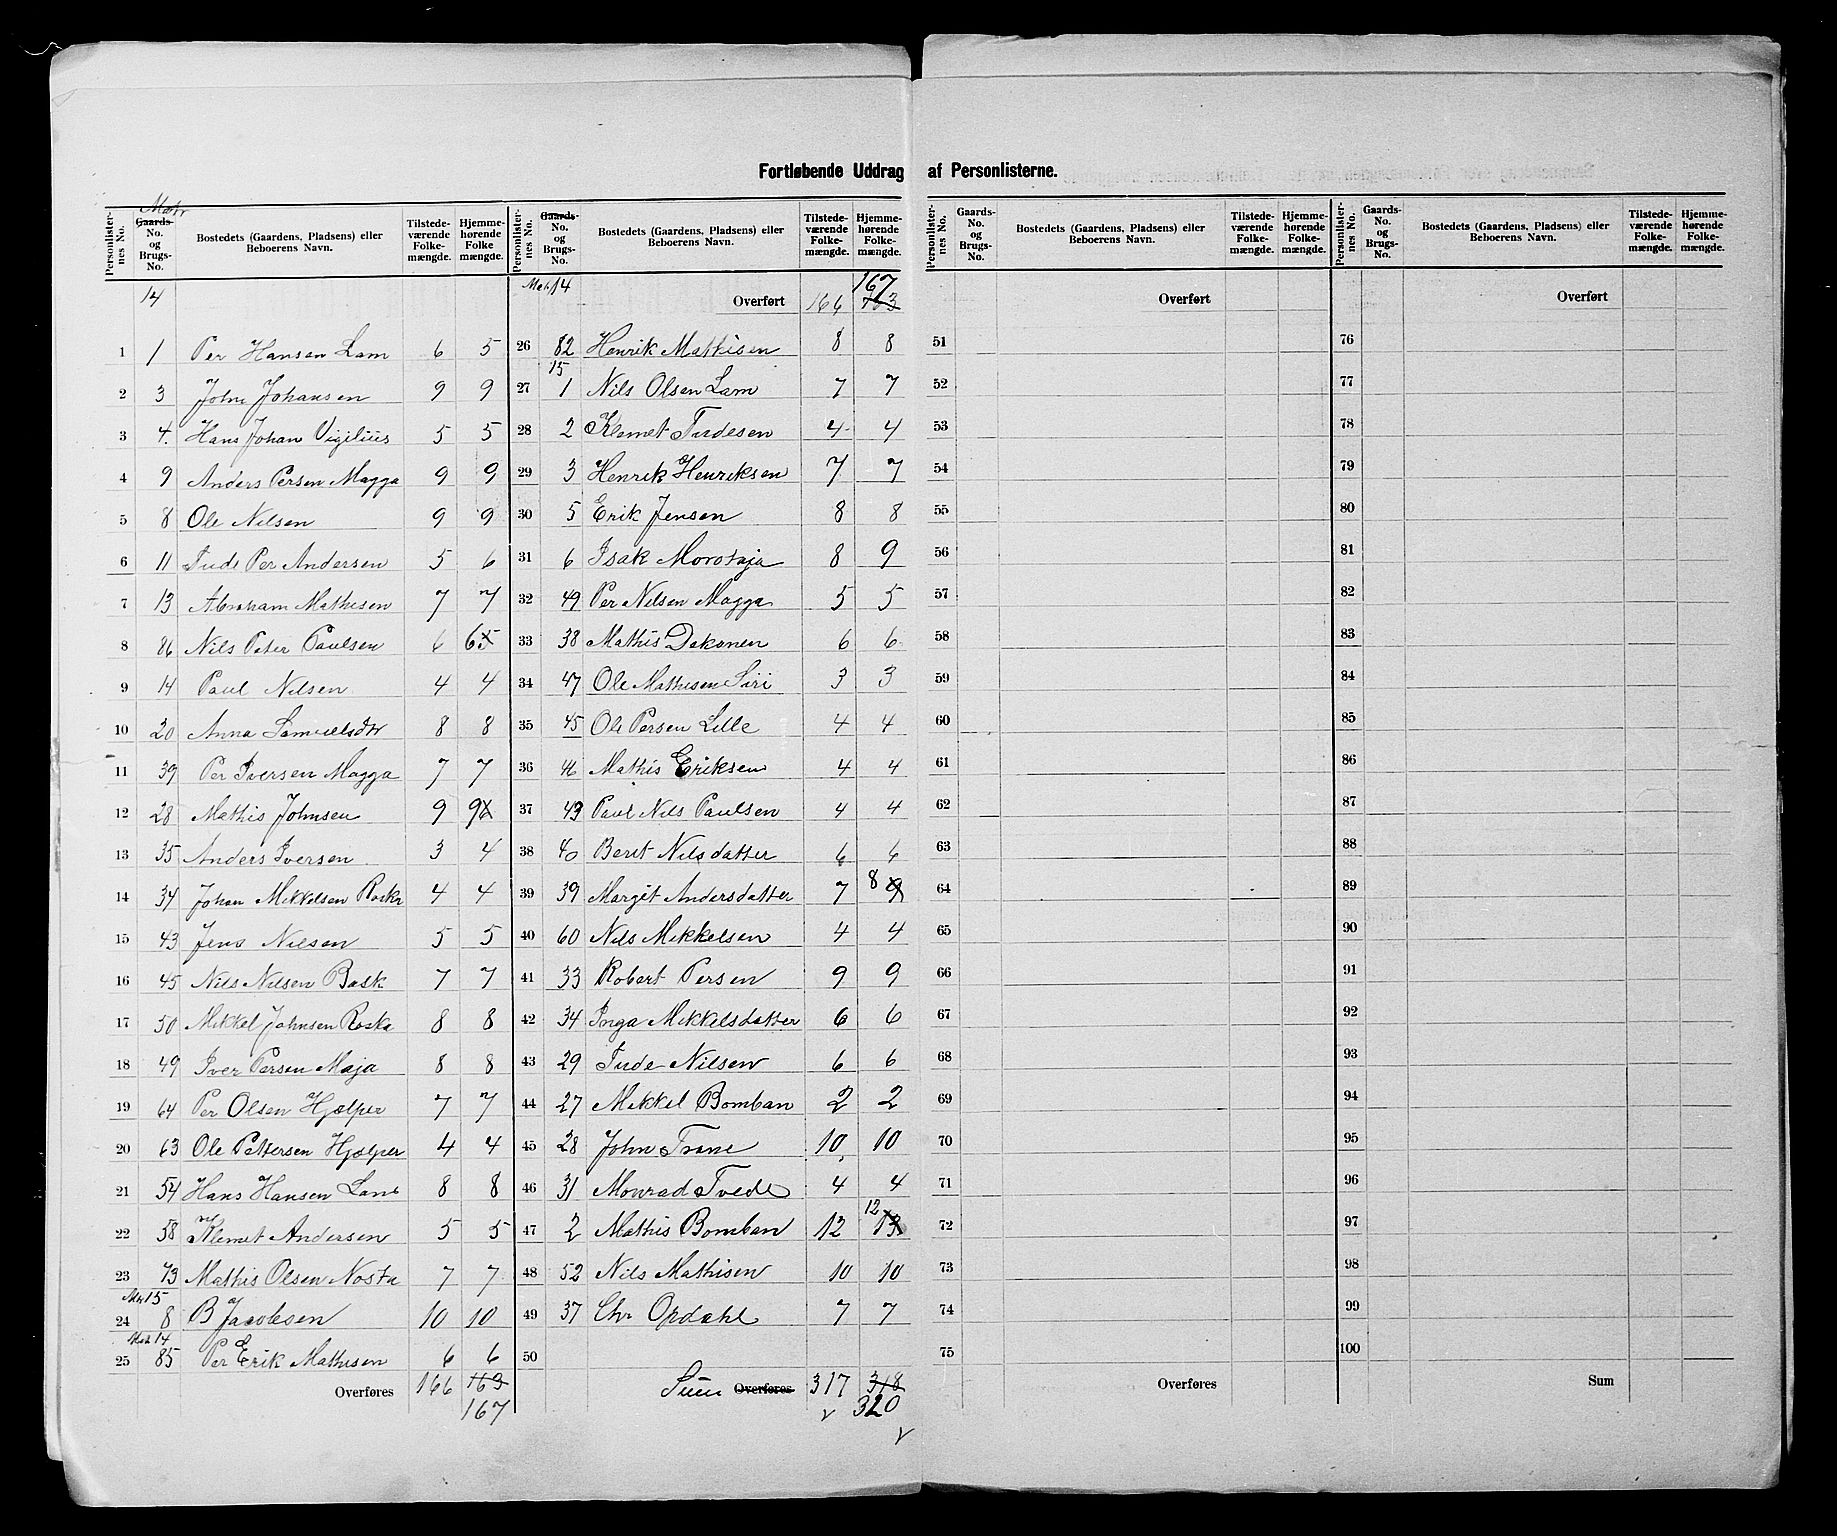 Fortløbende Uddrag af Personlisterne.
Matr
Personlisternes No. Gaards-No. og Brugs-No. Bostedets (Gaardens, Pladsens) eller Beboerens Navn. Tilstedeværende Folkemængde. Hjemmehørende Folkemængde.
14
1 1 Per Hansen Lam 6 5
2 3 John Johansen 9 9
3 4. Hans Johan Vigilius 5 5
4 9 Anders Persen Magga 9 9
5 8 Ole Nilsen 9 9
6 11 Tude Per Andersen 5 6
7 13 Abraham Mathisen 7 7
8 86 Nils Peter Paulsen 6 6 5
9 14 Paul Nilsen 4 4
10 20 Anna Samuelsdtr 8 8
11 39 Per Iversen Magga 7 7
12 28 Mathis Johnsen 9 9 6
13 35 Anders Iversen 3 4
14 34 Johan Mikkelsen Roska 4 4
15 43 Jens Nilsen 5 5
16 45 Nils Nilsen Bask 7 7
17 50 Mikkel Johnsen Roska 8 8
18 49 Iver Persen Maja 8 8
19 64 Per Olsen Hjælper 7 7
20 63 Ole Pettersen Hjælper 4 4
21 54 Hans Hansen Lam 8 8
22 58 Klemet Andersen 5 5
23 73 Mathis Olsen Nosta 7 7
Mat 15
24 8 B Jacobsen 10 10
Mat 14
25 85 Per Erik Mathisen 6 6
Overføres 166 163
167
Personlisternes No. Gaards-No. og Brugs-No. Bostedets (Gaardens, Pladsens) eller Beboerens Navn. Tilstedeværende Folkemængde. Hjemmehørende Folkemængde.
Mat. 14 167
Overført 166 163
26 82 Henrik Mathisen 8 8
15
27 1 Nils Olsen Lam 7 7
28 2 Klemet Tudesen 4 4
29 3 Henrik Henriksen 7 7
30 5 Erik Jensen 8 8
31 6 Isak Morotaja 8 9
32 49 Per Nilsen Magga 5 5
33 38 Mathis Dakonen 6 6
34 47 Ole Mathisen Siri 3 3
35 45 Ole Persen Lille 4 4
36 46 Mathis Eriksen 4 4
37 43 Paul Nils Paulsen 4 4
38 40 Beret Nilsdatter 6 6
39 39 Margit Andersdatter 7 8 9
40 60 Nils Mikkelsen 4 4
41 33 Robert Persen 9 9
42 34 Inga Mikkelsdatter 6 6
43 29 Tude Nilsen 6 6
44 27 Mikkel Bomban 2 2
45 28 John Trane 10 10
46 31 Monrad Tvede 4 4
47 2 Mathis Bomban 12 12 13
48 52 Nils Mathisen 10 10
49 37 Chr Opdahl 7 7
50
Sum Overføres 317 318
v 320
v
Personlisternes No. Gaards-No. og Brugs-No. Bostedets (Gaardens, Pladsens) eller Beboerens Navn. Tilstedeværende Folkemængde. Hjemmehørende Folkemængde.
Overført
51
52
53
54
55
56
57
58
59
60
61
62
63
64
65
66
67
68
69
70
71
72
73
74
75
Overføres
Personlisternes No. Gaards-No. og Brugs-No. Bostedets (Gaardens, Pladsens) eller Beboerens Navn. Tilstedeværende Folkemængde. Hjemmehørende Folkemængde.
Overført
76
77
78
79
80
81
82
83
84
85
86
87
88
89
90
91
92
93
94
95
96
97
98
99
100
Sum